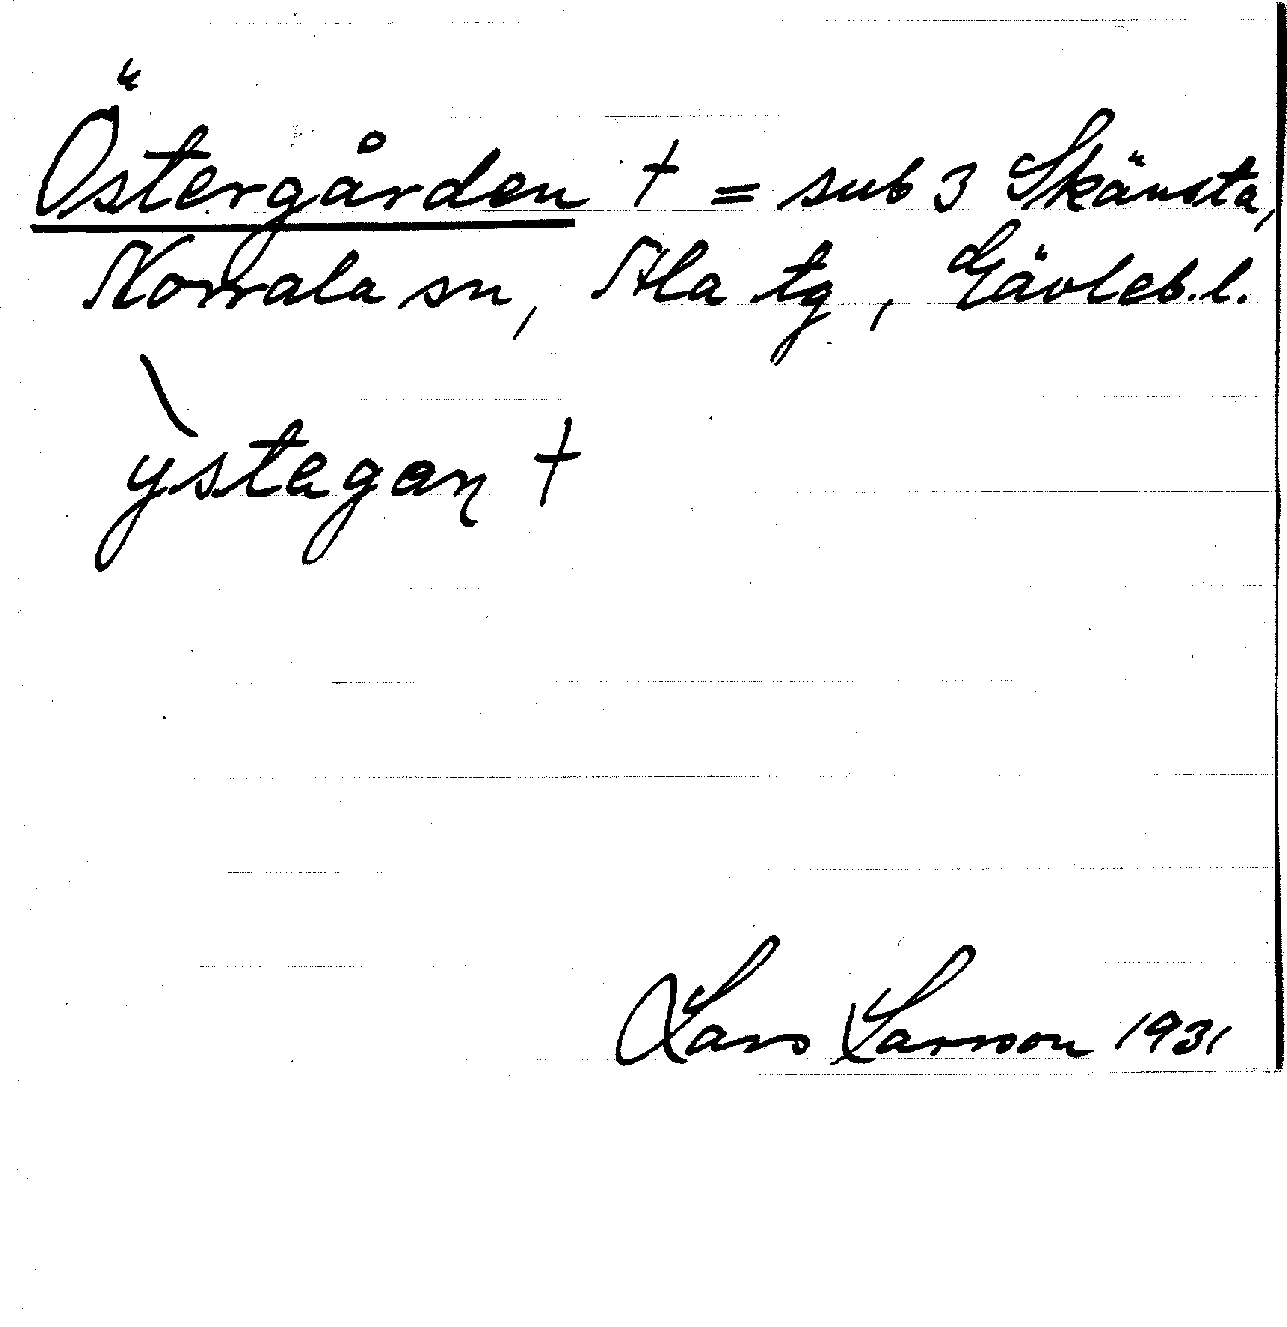 Östergården † = sub 3 Skänsta,
Norrala sn, Ala tg, Gävleb. l.
ỳstagaṇ †
Lars Larsson 1931